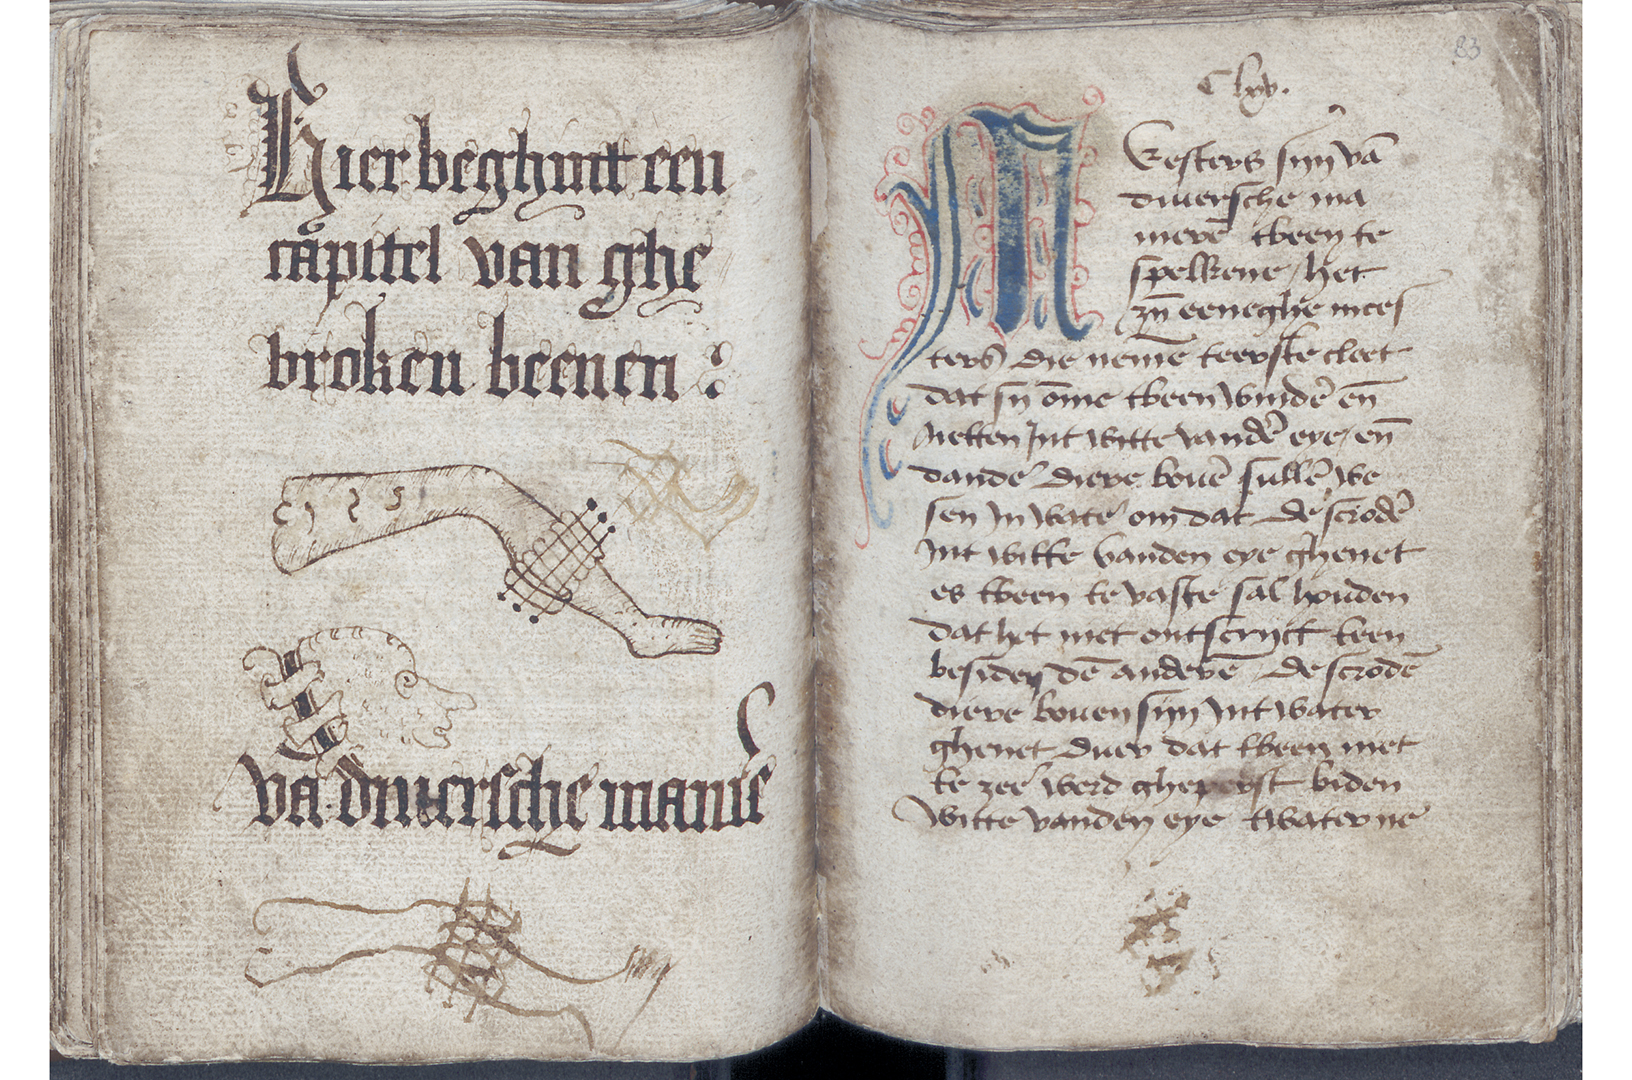 Hier beghint een
capitel van ghe
broken beenen :
1 2 5
vā diuersche manie
83
Clxv.
Eesters sijn vā
diuersche ma
nierē tbeen te
spelkene / het
zijn eeneghe mees
ters die nemē teerste cleet
dat sij ōme tbeen windē eñ
netten Int witte vandē eye / eñ
dandē diere bouē sullē we
sen in watē om dat de scrodē
Int witte vanden eye ghenet
es tbeen te vaste sal houden
dat het niet ontscrijct teen
besiden dē anderē / de scrodē
diere bouen sijn Int water
ghenet duer dat tbeen niet
te zeē werd gheperst biden
witte vanden eye twater ne